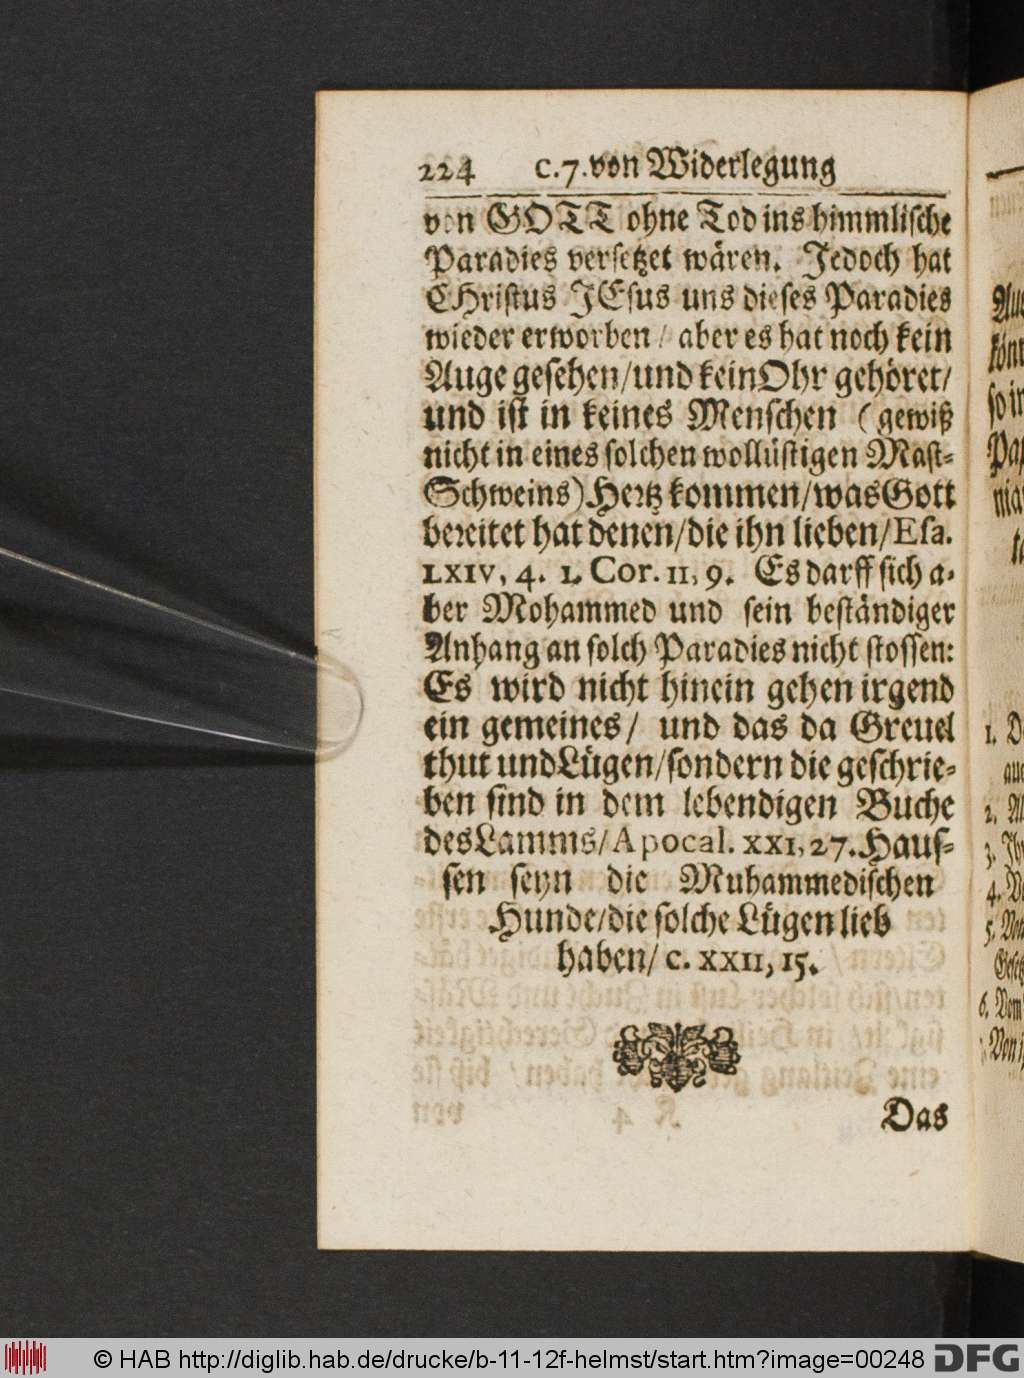 224 c. 7. von Widerlegung
von GOTT ohne Tod ins himmlische
Paradies versetzet wären. Jedoch hat
CHristus JEsus uns dieses Paradies
wieder erworben / aber es hat noch kein
Auge gesehen/und kein Ohr gehöret/
und ist in keines Menschen (gewiß
nicht in eines solchen wollüstigen Mast-
Schweins) Hertz kommen/was Gott
bereitet hat denen/die ihn lieben/Esa.
LXIV, 4. 1. Cor. II, 9. Es darff sich a-
ber Mohammed und sein beständiger
Anhang an solch Paradies nicht stossen:
Es wird nicht hinein gehen irgend
ein gemeines/ und das da Greuel
thut und Lügen/sondern die geschrie-
ben sind in dem lebendigen Buche
des Lamms/Apocal. XXI, 27. Haus-
sen seyn die Muhammedischen
Hunde/die solche Lügen lieb
haben/ c. XXII, 15.
Das
1.
2.
3.
4.
5.
6.
© HAB http://diglib.hab.de/drucke/b-11-12f-helmst/start.htm?image=00248 DFG